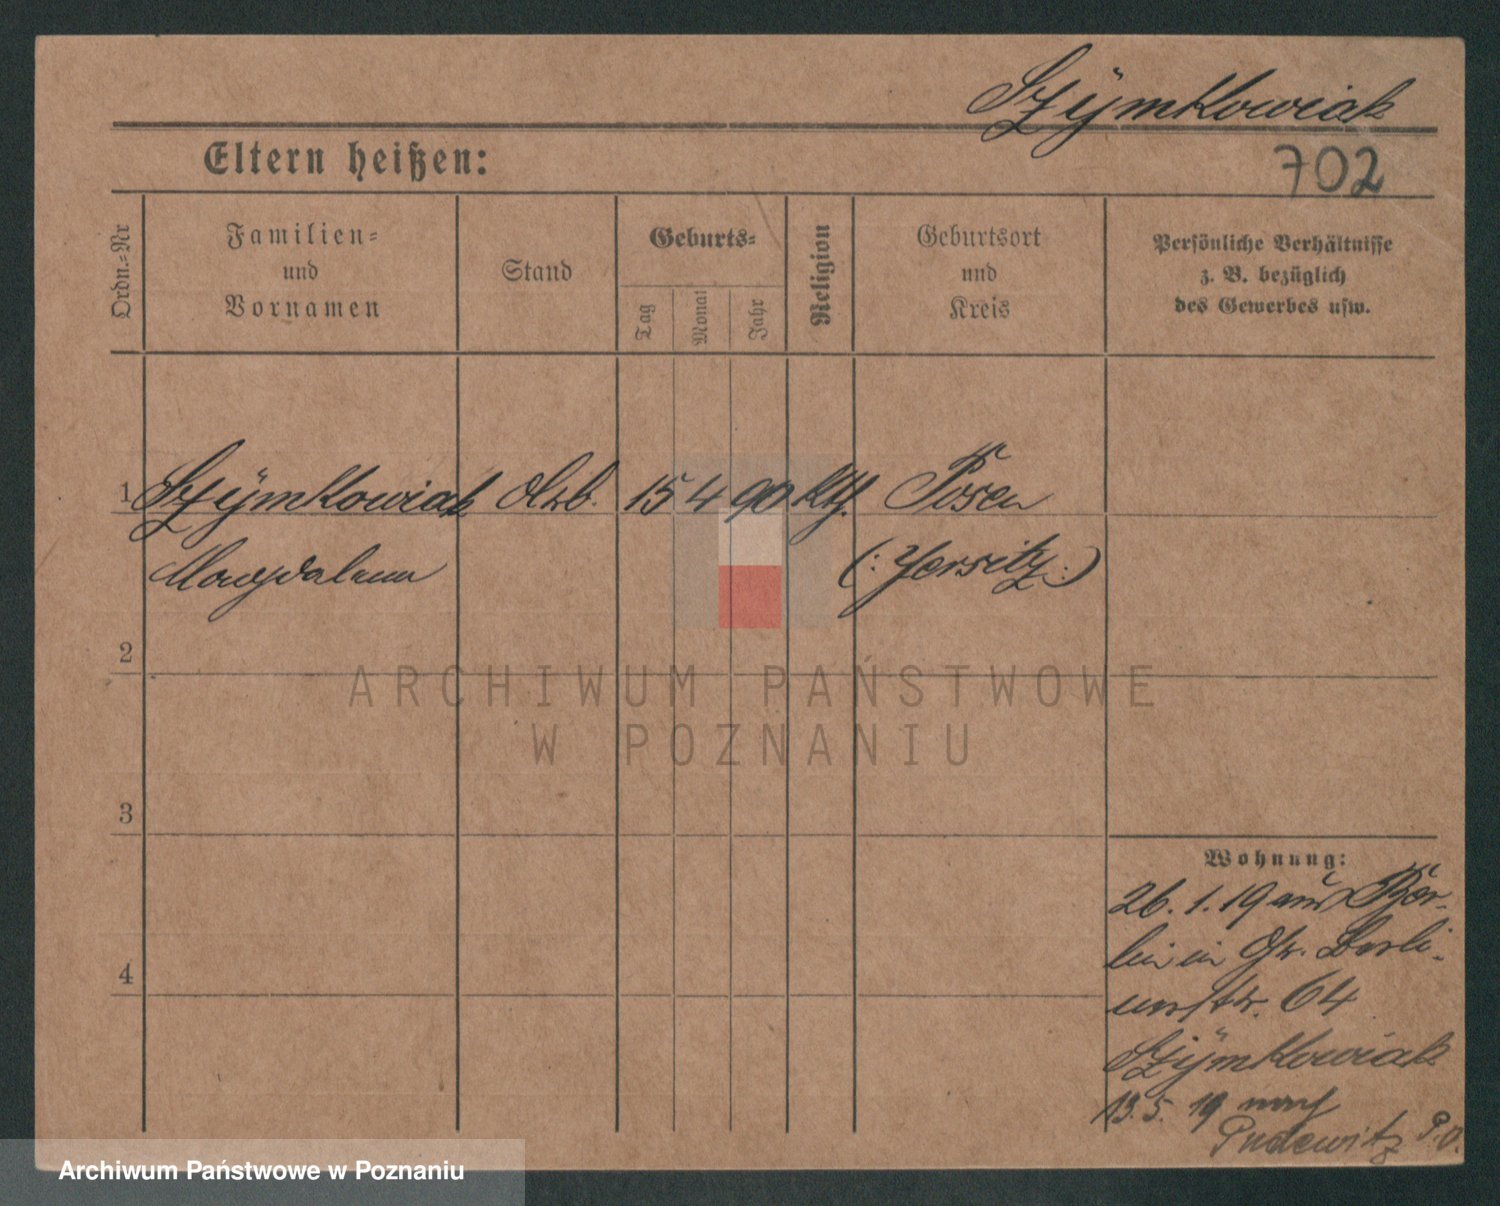 Szÿmkowiak
Eltern heißen:
702
Ordn.-Nr
Familien-
und
Vornamen
Stand
Geburts-
Tag
Monat
Jahr
Religion
Geburtsort
und
Kreis
Persönliche Verhältnisse
z. B. bezüglich
des Gewerbes usw.
1 Szÿmkowiak Arb. 15 4 90 kth. Posen
Magdalena (: Jersitz :)
2
3
4
ARCHIWUM PAŃSTWOWE
W POZNANIU
Wohnung:
26. 1. 19 aus Ber-
lin in Gr. Berli-
nerstr. 64
Szÿmkowiak
13. 5. 19 nach
Pudewitz P.O.
Archiwum Państwowe w Poznaniu